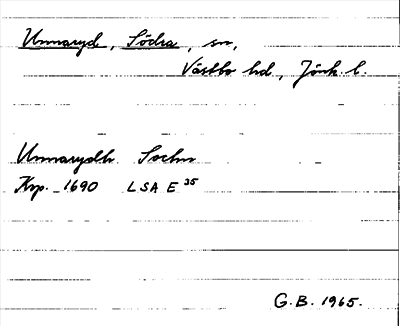 Unnaryd, Södra, sn,
Västbo hd, Jönk. l.
Unnarydh Sochn
Krp. 1690 LSA E 35
G.B. 1965.